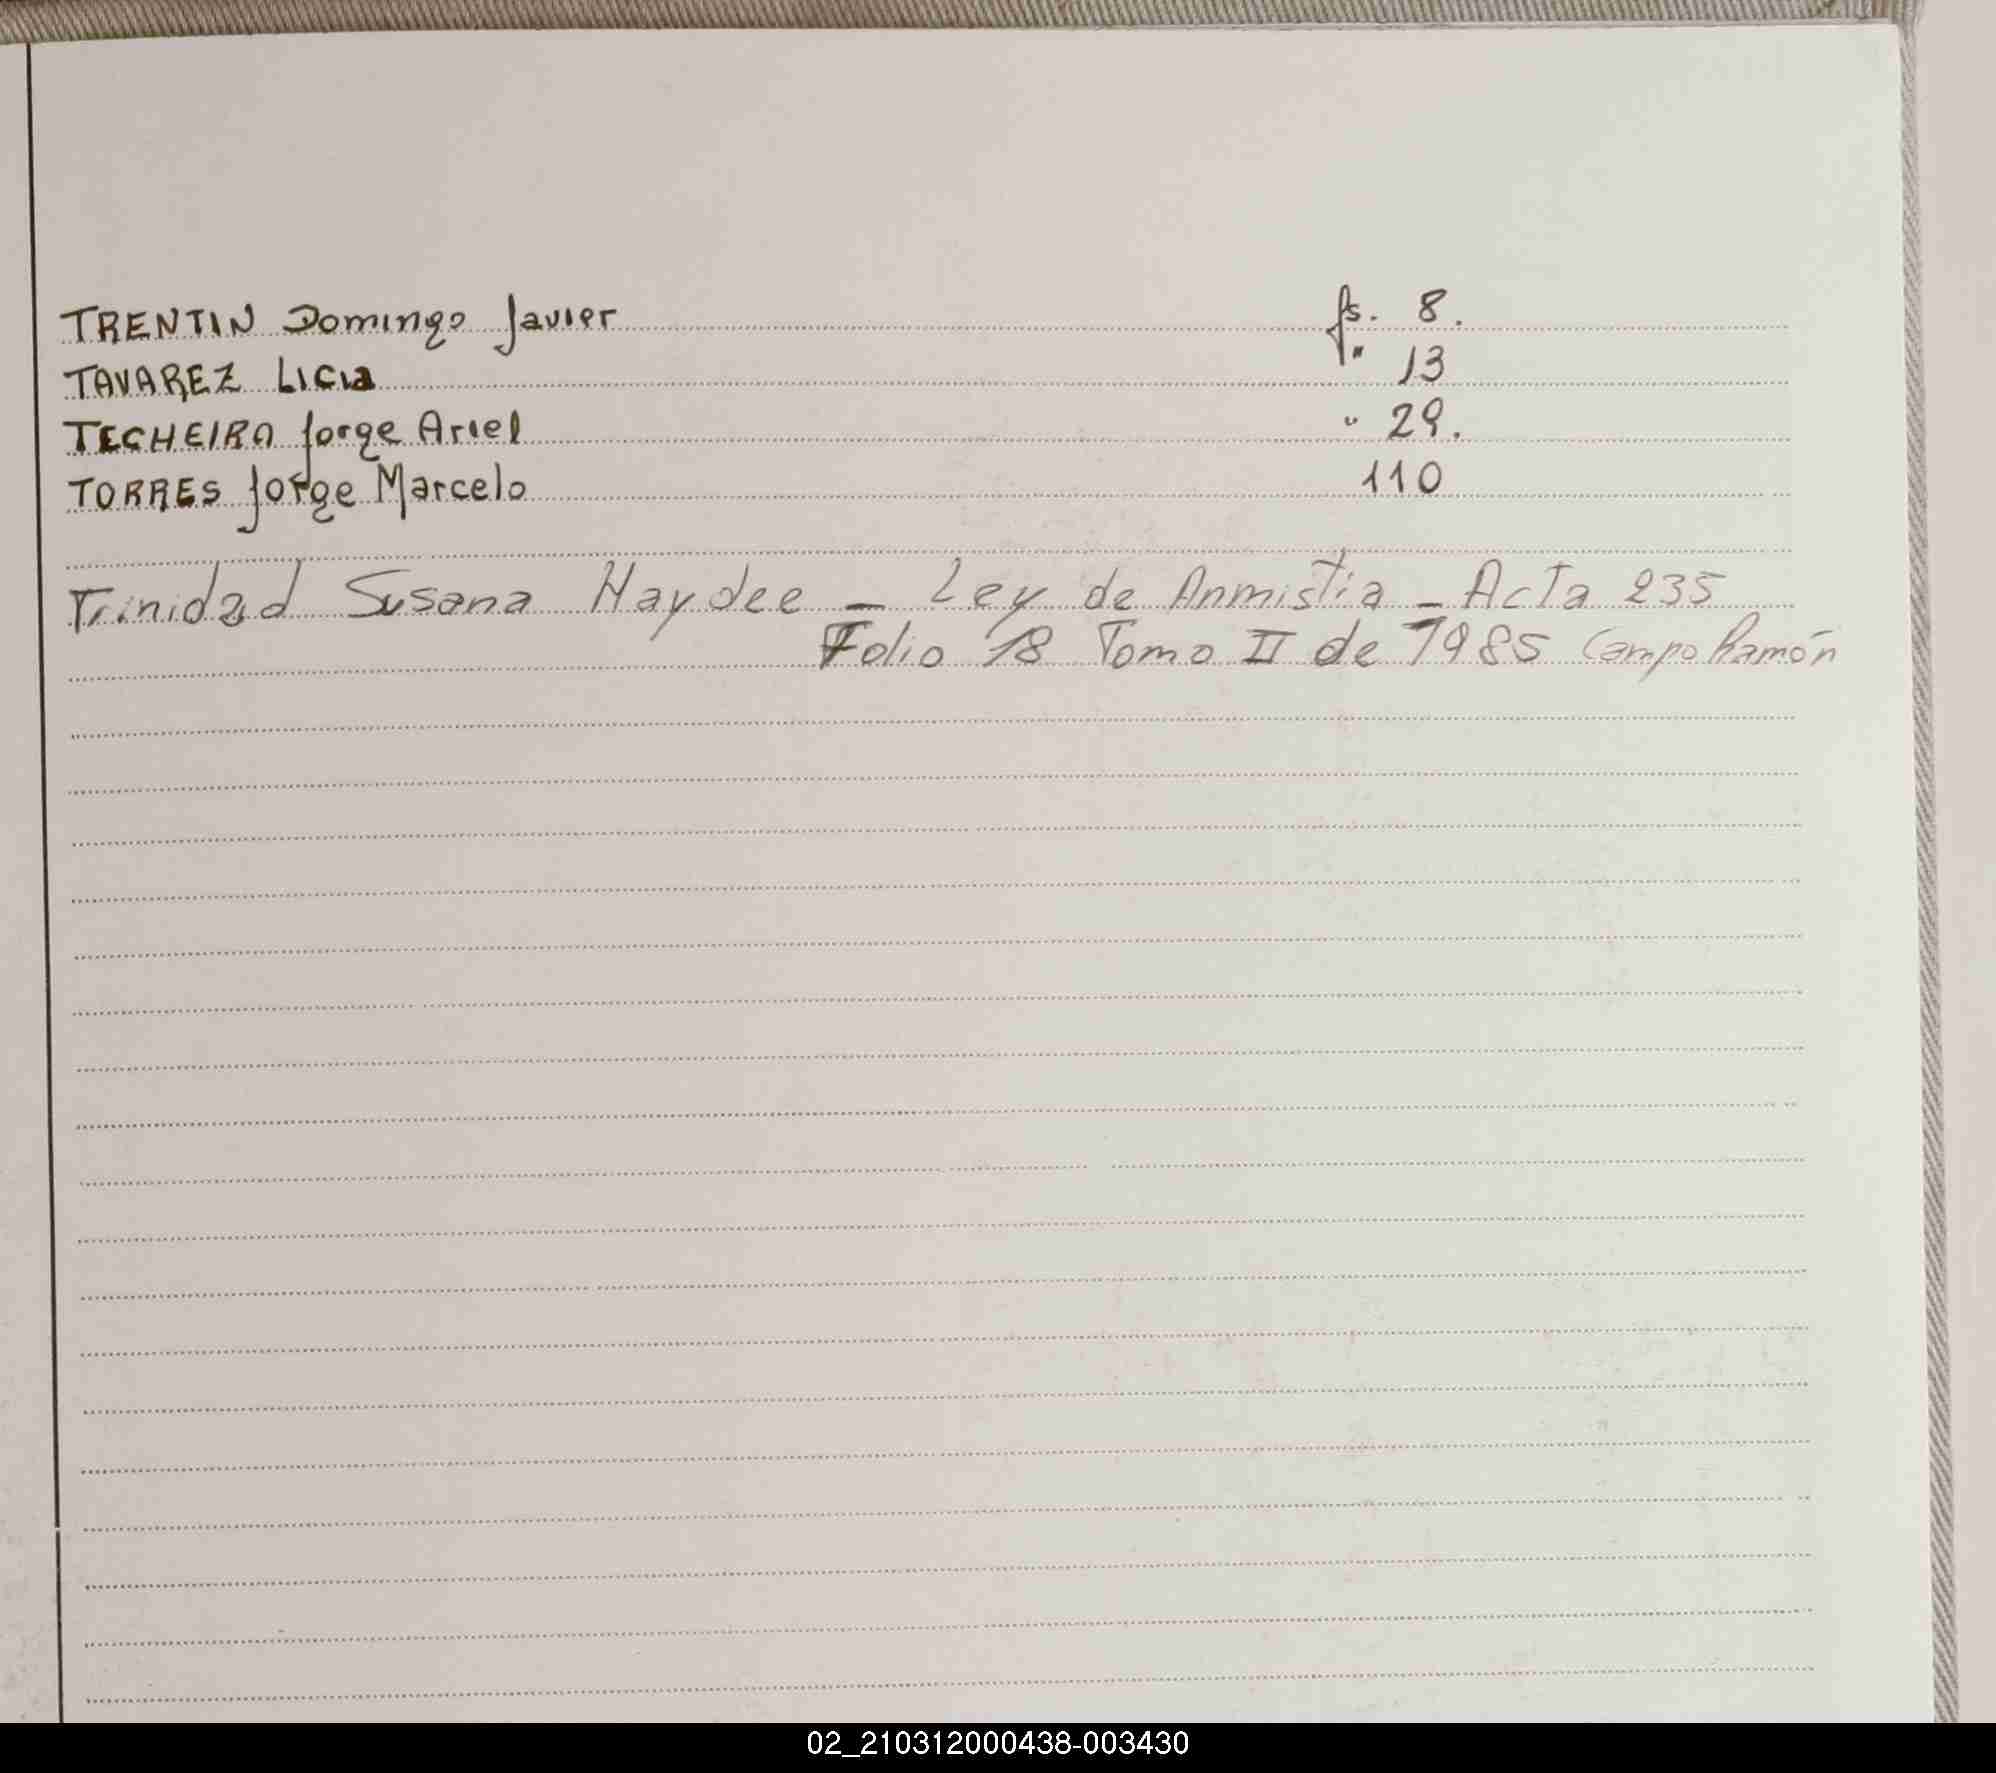 TRENTIN Domingo Javier fs. 8.
TAVAREZ Licia " 13
TECHEIRA Jorge Ariel " 29.
TORRES Jorge Marcelo 110
Trinidad Susana Haydee - Ley de Anmistia - Acta 235
Folio 18 Tomo II de 1985 Campo Ramón
02_210312000438-003430